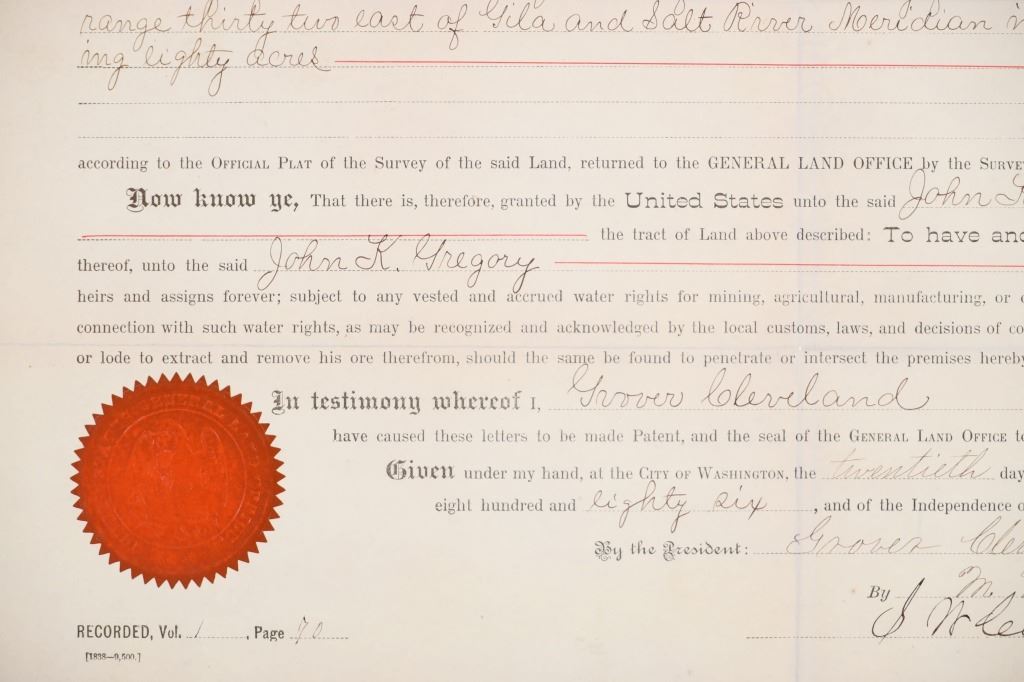 range thirty two east of Gila and Salt River Meridian in
ing eighty acres
according to the Official Plat of the Survey of the said Land, returned to the GENERAL LAND OFFICE by the Surve
Now know ye, That there is, therefore, granted by the United States unto the said John
the tract of Land above described: To have and
thereof, unto the said John K. Gregory
heirs and assigns forever; subject to any vested and accrued water rights for mining, agricultural, manufacturing, or
connection with such water rights, as may be recognized and acknowledged by the local customs, laws, and decisions of co
or lode to extract and remove his ore therefrom, should the same be found to penetrate or intersect the premises hereby
In testimony whereof I, Grover Cleveland
have caused these letters to be made Patent, and the seal of the General Land Office to
Given under my hand, at the City of Washington, the twentieth day
eight hundred and eighty six, and of the Independence o
By the President: Grover Clev
By M.
RECORDED, Vol. 1, Page 70
[1838—9,500.]